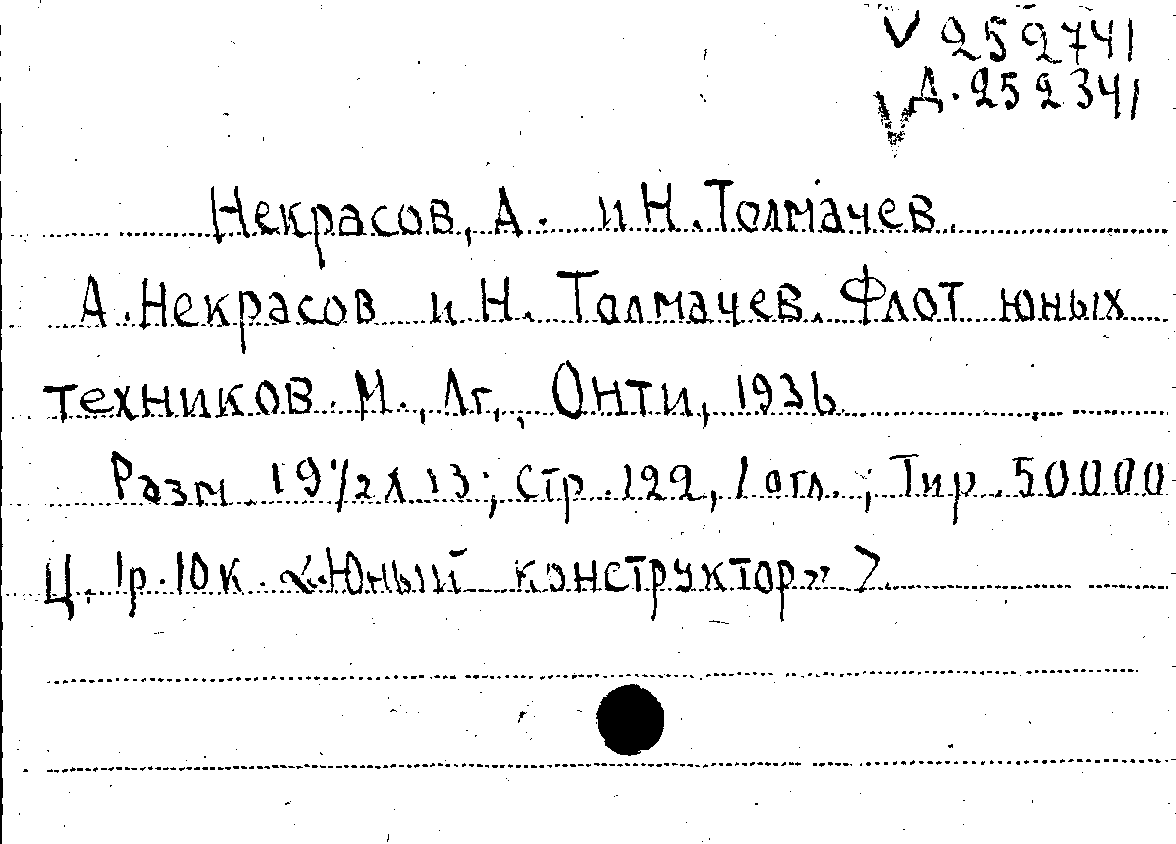 V 252741
V Д. 252341
Некрасов, А. и Н. Толмачев.
А. Некрасов и Н. Толмачев. Флот юных
техников. М., Лг., Онти, 1936
Разм. 19 1/2 х 13; Стр. 122, 1 огл.; Тир. 50000
Ц. 1р. 10к. «Юный конструктор» >